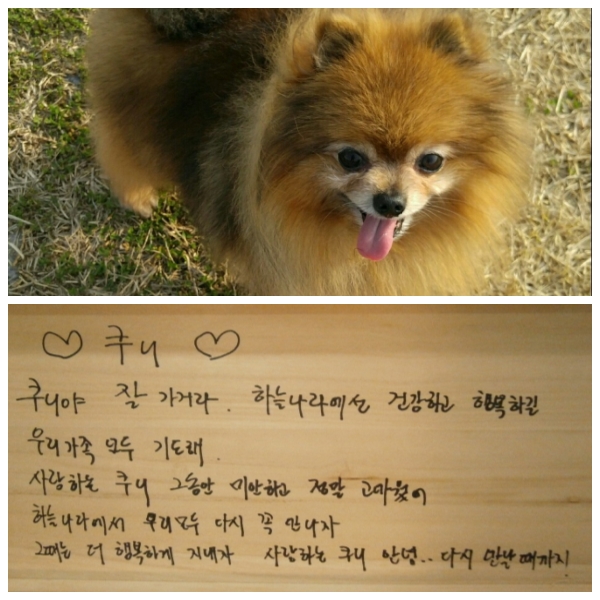 ♡ 쿠니 ♡
쿠니야 잘 가거라. 하늘나라에선 건강하고 행복하길
우리가족 모두 기도해.
사랑하는 쿠니 그동안 미안하고 정말 고마웠어
하늘나라에서 우리모두 다시 꼭 만나자
그때는 더 행복하게 지내자 사랑하는 쿠니 안녕.. 다시 만날때까지!